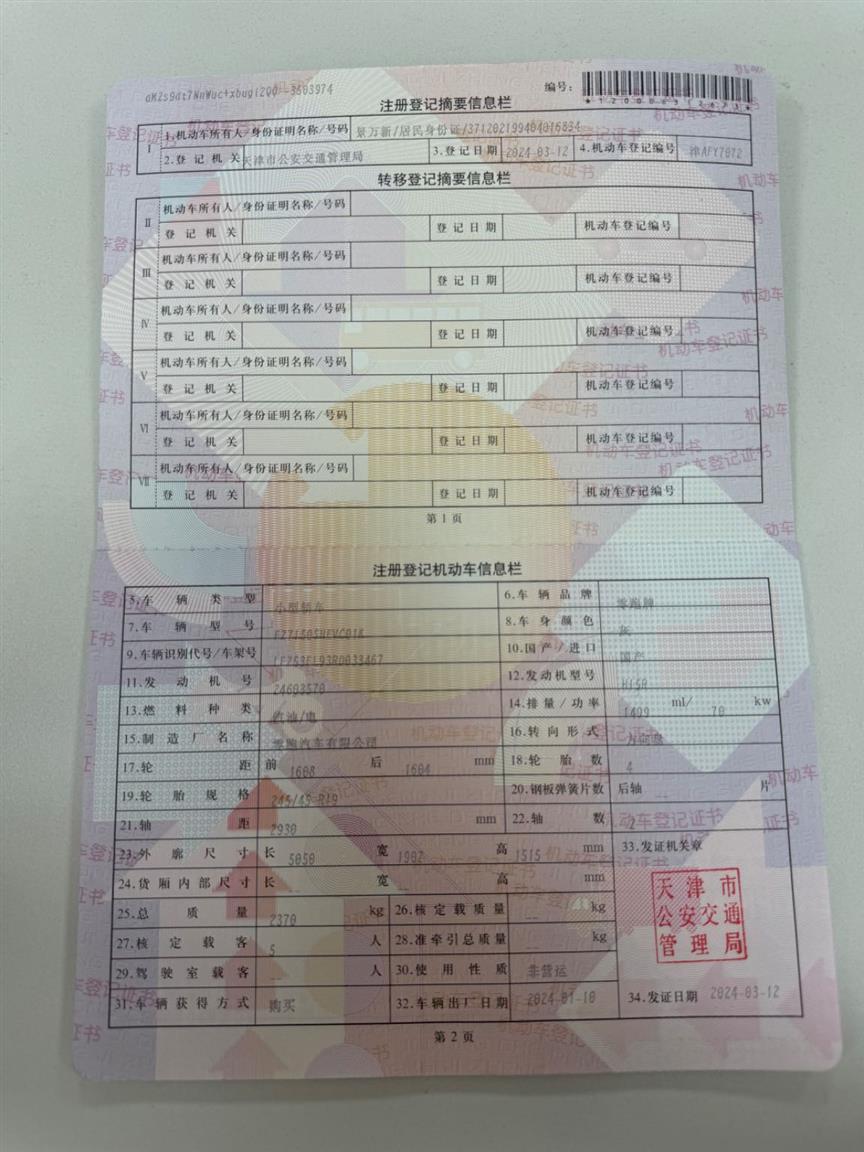 编号：
注册登记摘要信息栏
Ⅰ 1.机动车所有人/身份证明名称/号码 景万新/居民身份证/371202199404016834
2.登记机关 天津市公安交通管理局 3.登记日期 2024-03-12 4.机动车登记编号 津AFY7072
转移登记摘要信息栏
Ⅱ 机动车所有人/身份证明名称/号码
登记机关 登记日期 机动车登记编号
Ⅲ 机动车所有人/身份证明名称/号码
登记机关 登记日期 机动车登记编号
Ⅳ 机动车所有人/身份证明名称/号码
登记机关 登记日期 机动车登记编号
Ⅴ 机动车所有人/身份证明名称/号码
登记机关 登记日期 机动车登记编号
Ⅵ 机动车所有人/身份证明名称/号码
登记机关 登记日期 机动车登记编号
Ⅶ 机动车所有人/身份证明名称/号码
登记机关 登记日期 机动车登记编号
第 1 页
注册登记机动车信息栏
5.车辆类型 小型轿车 6.车辆品牌 零跑牌
7.车辆型号 8.车身颜色 灰
9.车辆识别代号/车架号 10.国产/进口 国产
11.发动机号 24603570 12.发动机型号 H15R
13.燃料种类 汽油/电 14.排量/功率 1499 ml/ 70 kw
15.制造厂名称 零跑汽车有限公司 16.转向形式 方向盘
17.轮距 前 1608 后 1604 mm 18.轮胎数 4
19.轮胎规格 245/45 R19 20.钢板弹簧片数 后轴 -- 片
21.轴距 2930 mm 22.轴数 2
23.外廓尺寸 长 5050 宽 1902 高 1515 mm 33.发证机关章
24.货厢内部尺寸 长 -- 宽 -- 高 -- mm
天津市
公安交通
管理局
25.总质量 2370 kg 26.核定载质量 -- kg
27.核定载客 5 人 28.准牵引总质量 -- kg
29.驾驶室载客 -- 人 30.使用性质 非营运
31.车辆获得方式 购买 32.车辆出厂日期 2024-01-10 34.发证日期 2024-03-12
第 2 页